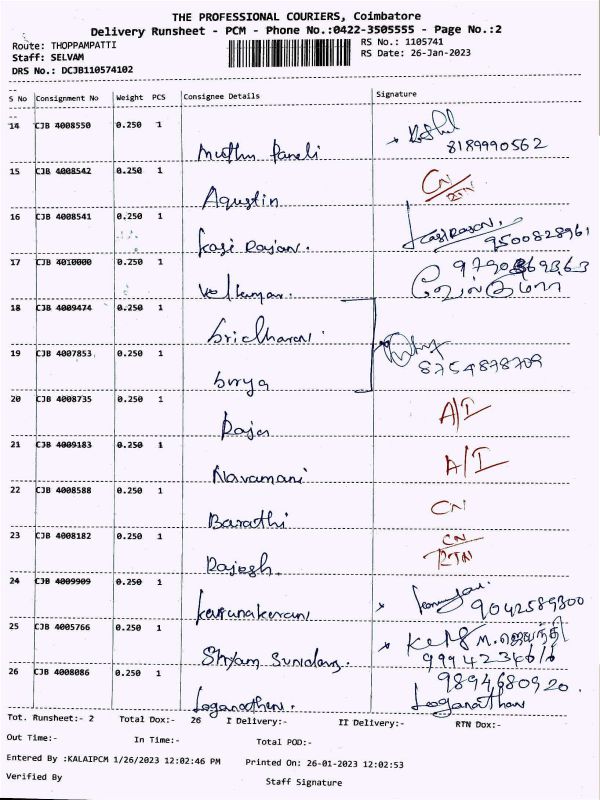 THE PROFESSIONAL COURIERS, Coimbatore
Delivery Runsheet - PCM - Phone No.:0422-3505555 - Page No.:2
Route: THOPPAMPATTI
RS No.: 1105741
Staff: SELVAM
RS Date: 26-Jan-2023
DRS No.: DCJB110574102
S No Consignment No Weight PCS Consignee Details Signature
14 CJB 4008550 0.250 1
Muthu 8189990562
15 CJB 4008542 0.250 1
Agustin CN/RTN
16 CJB 4008541 0.250 1
Kasi Rajan. Kasi Rajan. 9500828961
17 CJB 4010000 0.250 1
Velkumar. வேல்குமார்
18 CJB 4009474 0.250 1
Sridharan.
19 CJB 4007853 0.250 1
Surya 8754878709
20 CJB 4008735 0.250 1
Raja A/I
21 CJB 4009183 0.250 1
Navamani A/I
22 CJB 4008588 0.250 1
Barathi CN
23 CJB 4008182 0.250 1
Rajesh. CN/RTN
24 CJB 4009909 0.250 1
Karunakaran 9042589300
25 CJB 4005766 0.250 1
Shyam Sundar. M.ஜெயந்தி
26 CJB 4008086 0.250 1
9894680920.
Loganathan. Loganathan
Tot. Runsheet:- 2 Total Dox:- 26 I Delivery:- II Delivery:- RTN Dox:-
Out Time:- In Time:- Total POD:-
Entered By :KALAIPCM 1/26/2023 12:02:46 PM Printed On: 26-01-2023 12:02:53
Verified By Staff Signature